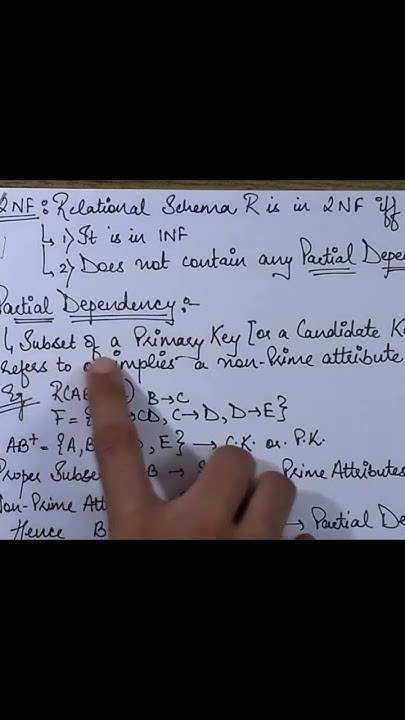 2NF : Relational Schema R is in 2NF iff
↳ 1) It is in 1NF
↳ 2) Does not contain any Partial Depe
Partial Dependency :-
↳ Subset of a Primary Key [or a Candidate K
refers to or implies a non-Prime attribute
Eg R(AB ) B→C
F = { →CD, C→D, D→E}
AB⁺ = {A, B , E} → C.K. or P.K.
Proper Subse B → Prime Attributes
Non-Prime Att
Hence B → Partial De